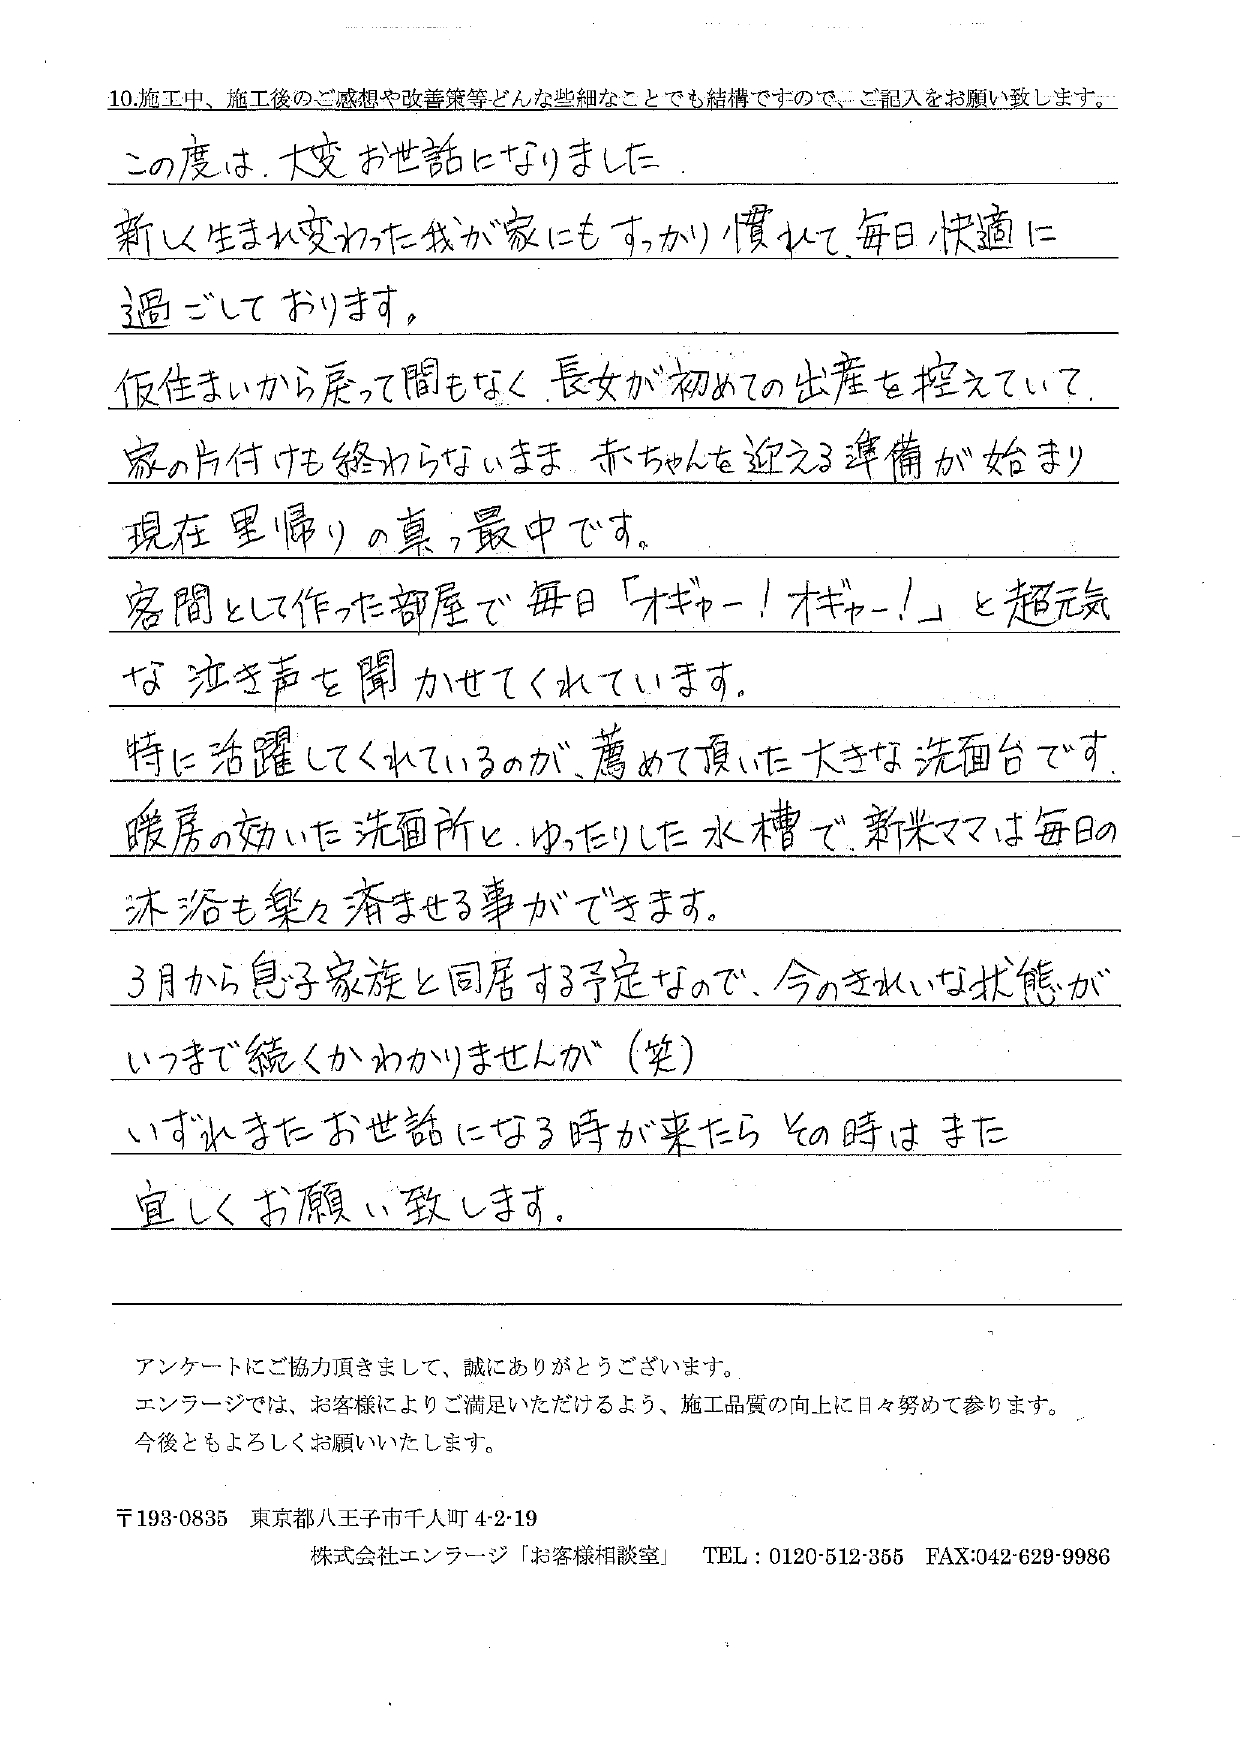 10.施工中、施工後のご感想や改善策等どんな些細なことでも結構ですので、ご記入をお願い致します。
この度は、大変お世話になりました
新しく生まれ変わった我が家にもすっかり慣れて、毎日快適に
過ごしております。
仮住まいから戻って間もなく、長女が初めての出産を控えていて、
家の片付けも終わらないまま、赤ちゃんを迎える準備が始まり
現在里帰りの真っ最中です。
客間として作った部屋で毎日「オギャー!オギャー!」と超元気
な泣き声を聞かせてくれています。
特に活躍してくれているのが、薦めて頂いた大きな洗面台です。
暖房の効いた洗面所と、ゆったりした水槽で、新米ママは毎日の
沐浴も楽々済ませる事ができます。
3月から息子家族と同居する予定なので、今のきれいな状態が
いつまで続くかわかりませんが(笑)
いずれまたお世話になる時が来たら その時は また
宜しくお願い致します。
アンケートにご協力頂きまして、誠にありがとうございます。
エンラージでは、お客様によりご満足いただけるよう、施工品質の向上に日々努めて参ります。
今後ともよろしくお願いいたします。
〒193-0835 東京都八王子市千人町 4-2-19
株式会社エンラージ「お客様相談室」 TEL:0120-512-355 FAX:042-629-9986